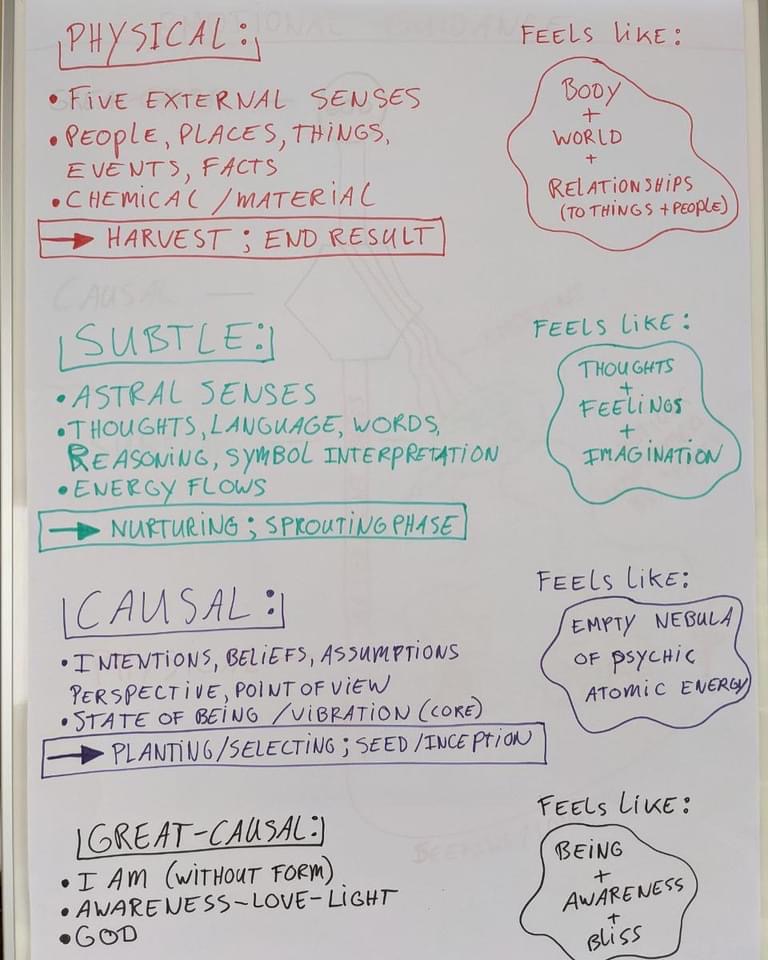 PHYSICAL:
• FIVE EXTERNAL SENSES
• PEOPLE, PLACES, THINGS,
EVENTS, FACTS
• CHEMICAL / MATERIAL
→ HARVEST ; END RESULT
FEELS LIKE:
BODY
+
WORLD
+
RELATIONSHIPS
(TO THINGS + PEOPLE)
SUBTLE:
• ASTRAL SENSES
• THOUGHTS, LANGUAGE, WORDS,
REASONING, SYMBOL INTERPRETATION
• ENERGY FLOWS
→ NURTURING ; SPROUTING PHASE
FEELS LIKE:
THOUGHTS
+
FEELINGS
+
IMAGINATION
CAUSAL:
• INTENTIONS, BELIEFS, ASSUMPTIONS
PERSPECTIVE, POINT OF VIEW
• STATE OF BEING / VIBRATION (CORE)
→ PLANTING/SELECTING ; SEED/INCEPTION
FEELS LIKE:
EMPTY NEBULA
OF PSYCHIC
ATOMIC ENERGY
GREAT-CAUSAL:
• I AM (WITHOUT FORM)
• AWARENESS-LOVE-LIGHT
• GOD
FEELS LIKE:
BEING
+
AWARENESS
+
BLISS